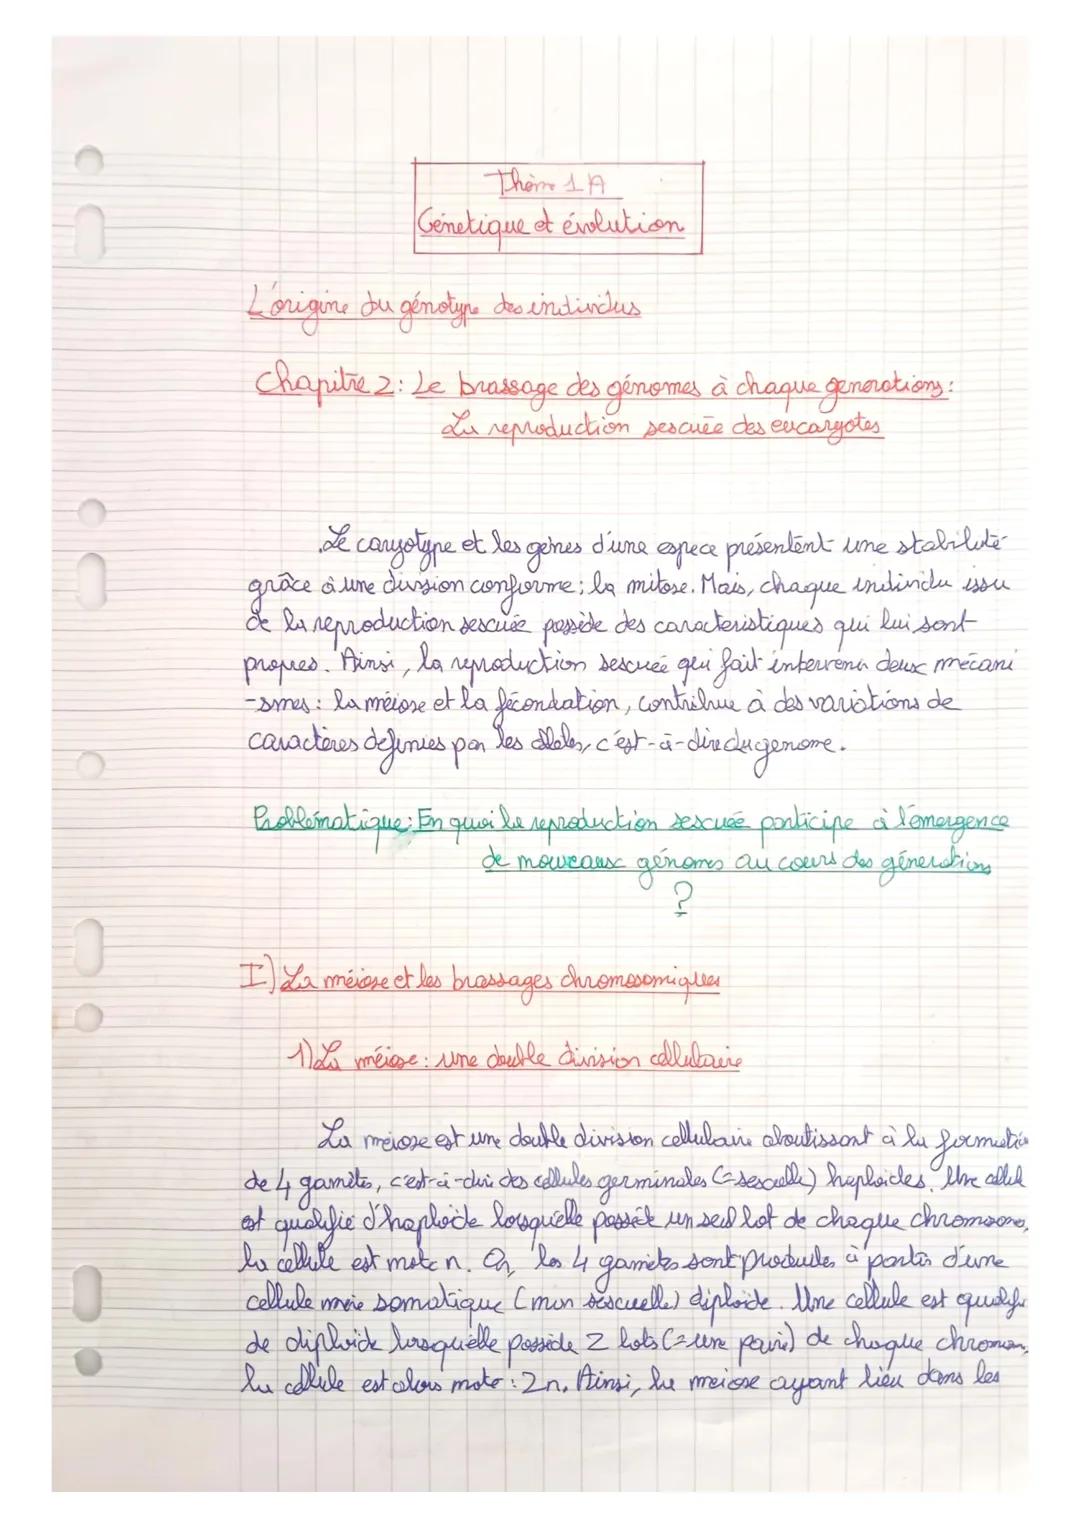 Thème 1A
Génetique et évolution
L'origine du génotype des individus
Chapitre 2: Le brassage des génomes à chaque generations:
La reproduction sescuée des eucaryotes
Le caryotype et les gènes d'une espece présentent une stabilité
grâce à une divsion conforme; la mitose. Mais, chaque individu issu
de la reproduction sescuée possède des caracteristiques qui lui sont
propres. Ainsi, la reproduction sescuée qui fait intervenir deux mécani
-smes: la méiose et la fécondation, contribue à des variations de
caractères definies par les alleles, c'est-à-dire du genome.
Problématique: En quoi la reproduction sescuée participe à l'émergence
de nouveaux génomes au cours des générations
?
I) La méiose et les brassages chromosomiques
1) La méiose: une double division cellulaire
La meiose est une double division cellulaire aboutissant à la formatio
de 4 gamètes, c'est-à-dire des cellules germinales (=sescuelle) haploides. Une cellule
est qualifié d'haploïde lorsqu'elle possède un seul lot de chaque chromosome,
la cellule est notée n. Or, les 4 gametes sont produites à partir d'une
cellule mère somatique (non sescuelle) diploide. Une cellule est qualifie
de diploide lorsqu'elle possède 2 lots (=une paire) de chaque chromosom,
la cellule est alors noté: 2n. Ainsi, la meiose ayant lieu dans les